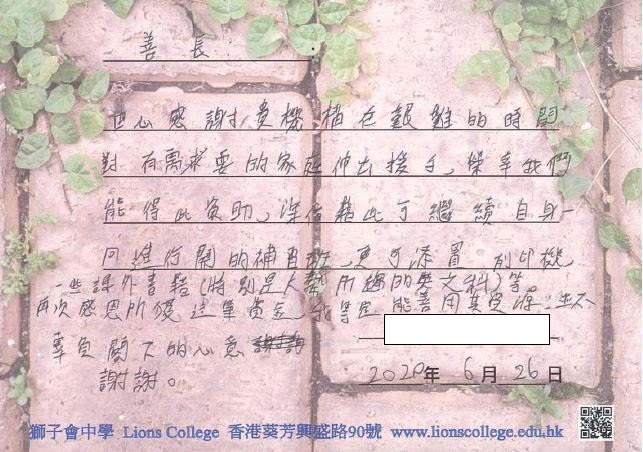 善長:
衷心感謝貴機構在艱難的時間
對有需求要的家庭伸出援手,榮幸我們
能得此資助,深信藉此可繼續自身一
進行開的補習班,更可添置 列印機,
一些課外書籍(特別是大 所 的 文科)等。
再次感恩所獲 業資金,我等定 能善用其資源,並不
辜負閣下的心意
謝謝。
2020年 6月 26日
獅子會中學 Lions College 香港葵芳興盛路90號 www.lionscollege.edu.hk